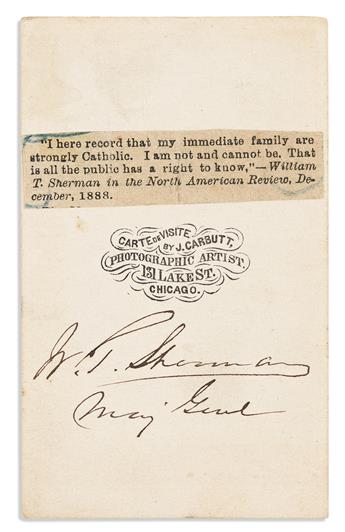 "I here record that my immediate family are
strongly Catholic. I am not and cannot be. That
is all the public has a right to know,"—William
T. Sherman in the North American Review, De-
cember, 1888.
CARTE DE VISITE
BY J. CARBUTT.
PHOTOGRAPHIC ARTIST.
131 LAKE ST.
CHICAGO.
W. T. Sherman
Maj Genl